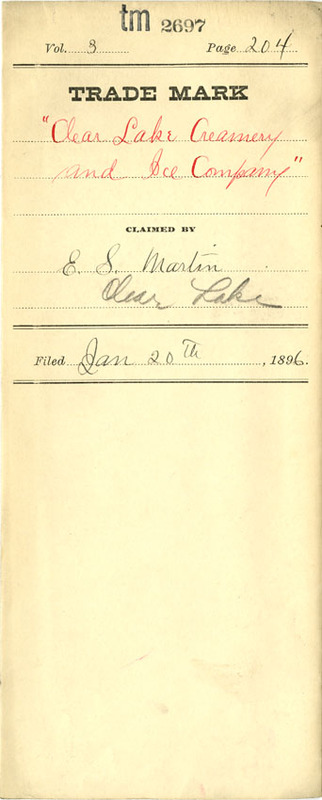 tm 2697
Vol. 3 Page 204
TRADE MARK
"Clear Lake Creamery
and Ice Company"
CLAIMED BY
E. S. Martin
Clear Lake
Filed Jan 20th, 1896.